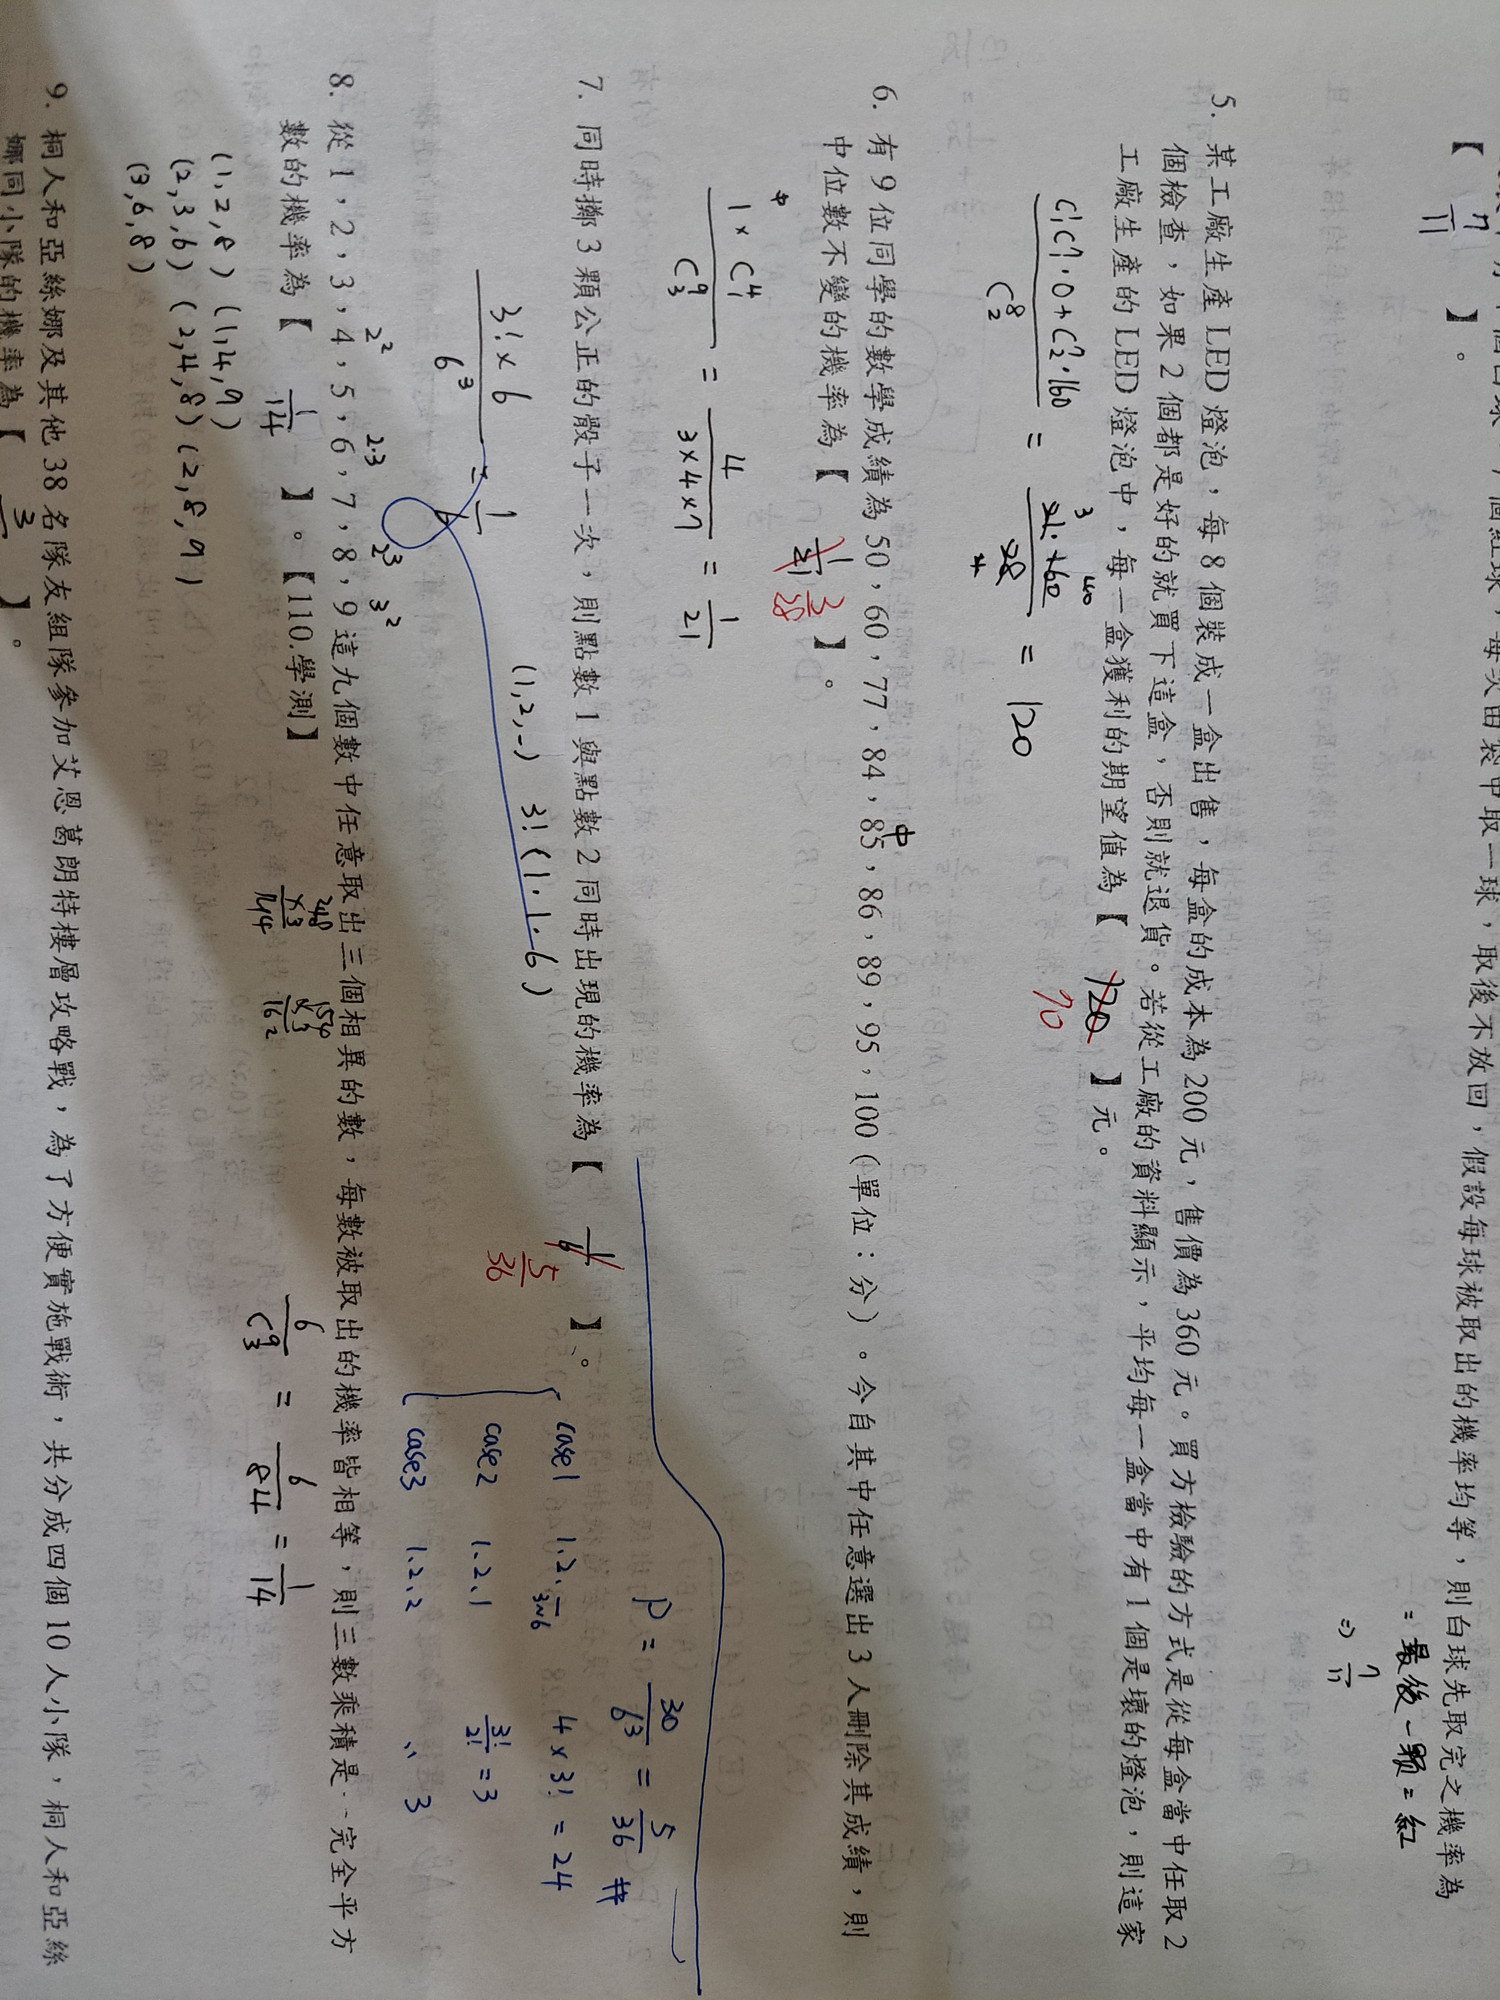 個紅球，每次由袋中取一球，取後不放回，假設每球被取出的機率均等，則白球先取完之機率為
【 7/11 】。
= 最後一顆 = 紅
⇒ 7/11
5. 某工廠生產LED燈泡，每8個裝成一盒出售，每盒的成本為200元，售價為360元。買方檢驗的方式是從每盒當中任取2
個檢查，如果2個都是好的就買下這盒，否則就退貨。若從工廠的資料顯示，平均每一盒當中有1個是壞的燈泡，則這家
工廠生產的LED燈泡中，每一盒獲利的期望值為【 120 】元。
70
(C¹₁C⁷₁·0+C⁷₂·160)/C⁸₂ = 21·160/28 = 120
3 40
4
6. 有9位同學的數學成績為50，60，77，84，85，86，89，95，100（單位：分）。今自其中任意選出3人刪除其成績，則
中
中位數不變的機率為【 1/21 3/28 】。
中
(1×C⁴₁)/C⁹₃ = 4/(3×4×7) = 1/21
7. 同時擲3顆公正的骰子一次，則點數1與點數2同時出現的機率為【 1/6 】。
5/36
(1,2,-) 3!(1·1·6)
(3!×6)/6³ = 1/6
P = 30/6³ = 5/36 #
case1 1.2.— 4×3! = 24
3~6
case2 1.2.1 3!/2! = 3
case3 1.2.2 〃 3
8. 從1，2，3，4，5，6，7，8，9這九個數中任意取出三個相異的數，每數被取出的機率皆相等，則三數乘積是一完全平方
2² 2·3 2³ 3²
數的機率為【 1/14 】。【110.學測】
(1,2,8) (1,4,9)
(2,3,6) (2,4,8) (2,8,9)
(3,6,8)
144
162
6/C⁹₃ = 6/84 = 1/14
9. 桐人和亞絲娜及其他38名隊友組隊參加艾恩葛朗特樓層攻略戰，為了方便實施戰術，共分成四個10人小隊，桐人和亞絲
娜同小隊的機率為【 3 】。